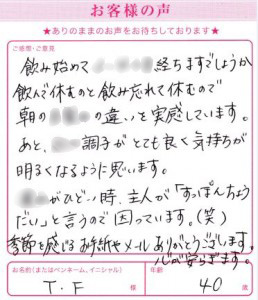 お客様の声
★ありのままのお声をお待ちしております★
ご感想・ご意見
飲み始めて 経ちますでしょうか
飲んで休むのと飲み忘れて休むので
朝の の違いを実感しています。
あと、 調子がとても良く気持ちが
明るくなるように思います。
がひどい時、主人が「すっぽんちょう
だい」と言うので困っています。(笑)
季節を感じるお手紙やメールありがとうございます。
心が安らぎます。
お名前(またはペンネーム、イニシャル)
年齢
T.F 様
40 歳